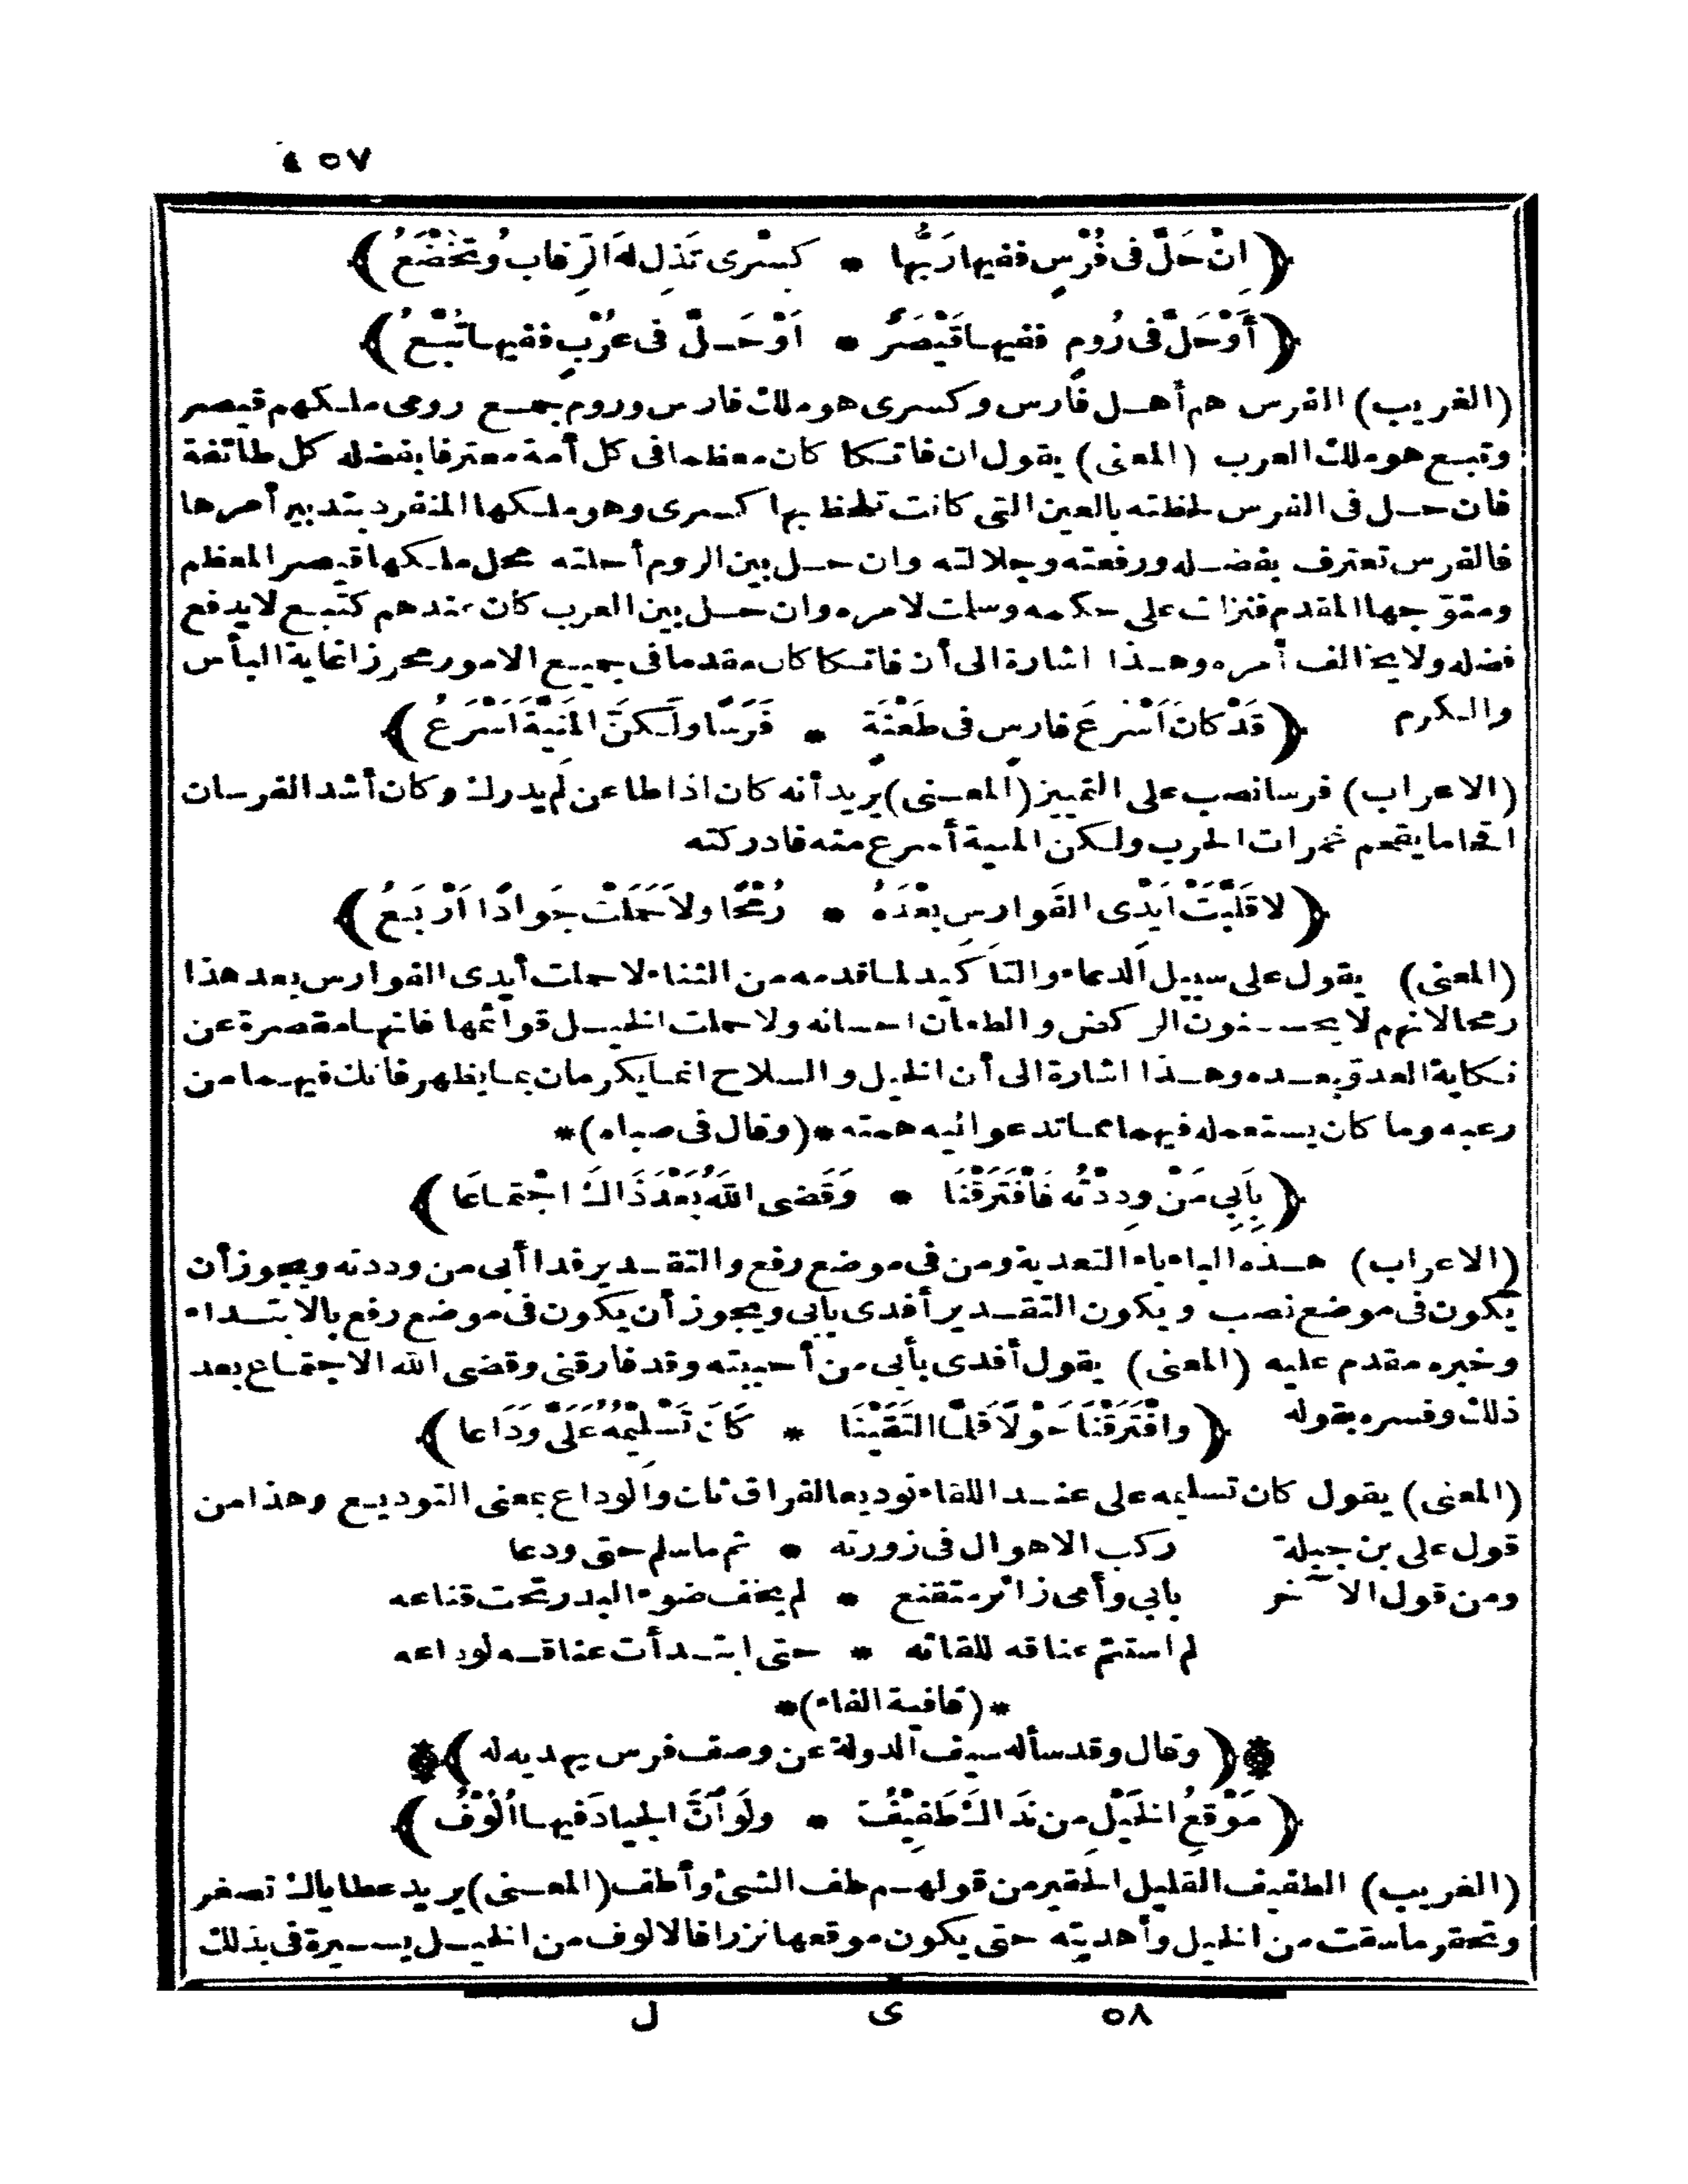 ٤٥٧
﴿ اِنْ حَلَّ فى فُرْسٍ ففيها رَبُّها * كِسْرى تَذِل لهَ الرِّقاب وتَخْضَعُ ﴾
﴿ أَوْحَلَّ فى رُومٍ ففيها قَيْصَرٌ * اَوْحَلَّ فى عُرْبٍ ففيها تُبَّعُ ﴾
(الغريب) الفرس هم أهل فارس وكسرى هو ملك فارس وروم جمع رومى ملكهم قيصر
وتبع هو ملك العرب (المعنى) يقول ان فاتكا كان معظما فى كل أمة معترفا بفضله كل طائفة
فان حل فى الفرس لحظته بالعين التى كانت تلحظ بها كسرى وهو ملكها المنفرد بتدبير أمرها
فالفرس تعترف بفضله ورفعته وجلالته وان حل بين الروم أحلته محل ملكها قيصر المعظم
ومتوّجها المقدم فنزلت على حكمه وسلمت لامره وان حل بين العرب كان عندهم كتبع لا يدفع
فضله ولا يخالف أمره وهذا اشارة الى أن فاتكا كان مقدما فى جميع الامور محرزا غاية البأس
والكرم ﴿ قَدْ كانَ اَسْرعَ فارسٍ فى طَعْنَةٍ * فَرَسًا ولٰكنَّ المَنِيَّةَ اَسْرَعُ ﴾
(الاعراب) فرسا نصب على التمييز (المعنى) يريد أنه كان اذا طاعن لم يدرك وكان أشد الفرسان
اقتحاما يقتحم غمرات الحرب ولكن المنية أسرع منه فادركته
﴿ لا قَلَّبَتْ اَيْدِى الفَوارسِ بعْدَهُ * رُمْحًا ولاَ حَمَلَتْ جَوادًا اَرْبَعُ ﴾
(المعنى) يقول على سبيل الدعاء والتأكيد لما قدمه من الثناء لا حملت أيدى الفوارس بعد هذا
رمحا لانهم لا يحسنون الركض والطعان احسانه ولا حملت الخيل قوائمها فانها مقصرة عن
نكاية العدوّ بعده وهذا اشارة الى أن الخيل والسلاح انما يكرمان بما يظهر فاتك فيهما من
رعبه وما كان يستعمله فيهما مما تدعو اليه همته *(وقال فى صباه)*
﴿ بِأَبِي مَنْ وِدِدْتُه فَافْتَرَقْنَا * وَقَضى اللّهُ بَعْدَ ذَاكَ اجْتماعَا ﴾
(الاعراب) هذه الباء باء التعدية ومن فى موضع رفع والتقدير فدا أبى من وددته ويجوز أن
يكون فى موضع نصب ويكون التقدير أفدى بابى ويجوز أن يكون فى موضع رفع بالابتداء
وخبره مقدم عليه (المعنى) يقول أفدى بأبى من أحببته وقد فارقنى وقضى الله الاجتماع بعد
ذلك وفسره بقوله ﴿ وافْتَرَقْنَا حَوْلاً فَلمَّا التَقَيْنَا * كَانَ تَسْلِيمُهُ عَلَىَّ وَدَاعا ﴾
(المعنى) يقول كان تسليمه على عند اللقاء توديعا لفراق ثان والوداع بمعنى التوديع وهذا من
قول على بن جبلة ركب الاهوال فى زورته * ثم ما سلم حتى ودعا
ومن قول الآخر بابى وأمى زائر متقنع * لم يخف ضوء البدر تحت قناعه
لم استتم عناقه للقائه * حتى ابتدأت عناقه لوداعه
*(قافية الفاء)*
﴿ وقال وقد سأله سيف الدولة عن وصف فرس يهديه له ﴾
﴿ مَوْقِعُ الخَيْلِ مِن نَدَاكَ طَفِيْفُ * ولَوَ اَنَّ الجِيادَ فيها اُلُوْفُ ﴾
(الغريب) الطفيف القليل الحقير من قولهم طف الشئ وأطف (المعنى) يريد عطاياك تصغر
وتحقر ما سقت من الخيل وأهديته حتى يكون موقعها نزرا فالالوف من الخيل يسيرة فى بذلك
٥٨ ى ل